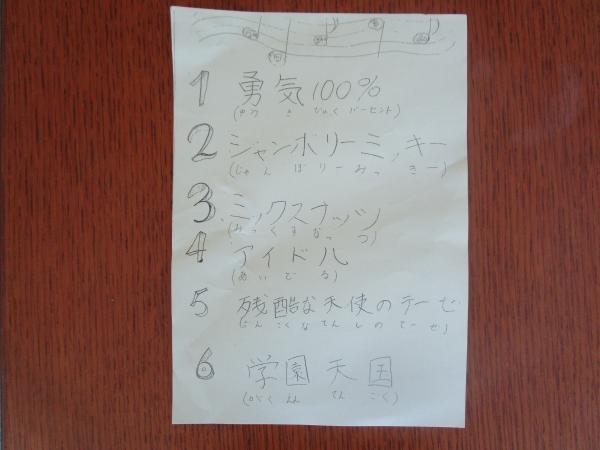 1 勇気100%
(ゆう き ひゃくパーセント)
2 ジャンボリーミッキー
(じゃんぼりーみっきー)
3 ミックスナッツ
(みっくすなっつ)
4 アイドル
(あいどる)
5 残酷な天使のテーゼ
(ざんこくなてんしのてーぜ)
6 学園天国
(がくえんてんごく)